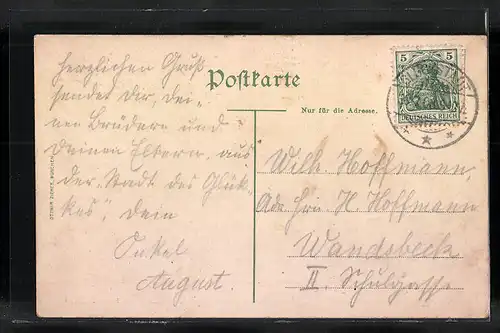 herzlichen Gruß
sendet dir, dei-
nen Brüdern und
deinen Eltern, aus
der „Stadt des Glük-
kes“, Dein
Onkel
August.
Postkarte
Nur für die Adresse.
5 5
DEUTSCHES REICH
Wilh. Hoffmann,
Adr. Hrn. H. Hoffmann
Wandsbeck
II. Schulgasse